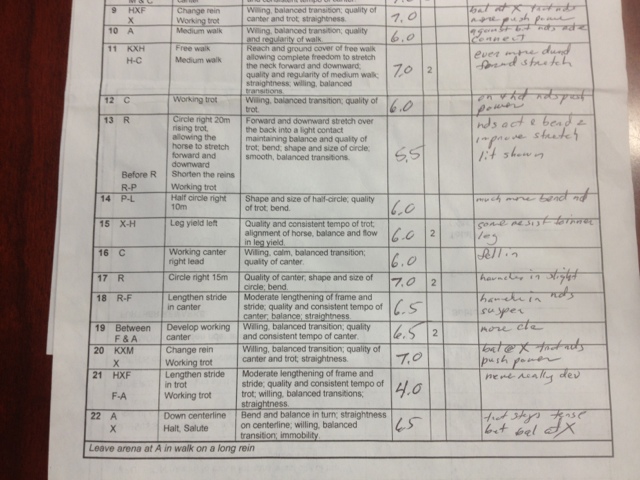 9 HXF Change rein Willing, balanced transition; quality of 7.0 bal at X
X Working trot canter and trot; straightness. more push power
10 A Medium walk Willing, balanced transition; quality 6.0 against bit nds
and regularity of walk. connect
11 KXH Free walk Reach and ground cover of free walk 7.0 2 even more
H-C Medium walk allowing complete freedom to stretch stretch
the neck forward and downward;
quality and regularity of medium walk;
straightness; willing, balanced
transitions.
12 C Working trot Willing, balanced transition; quality of 6.0
trot. power
13 R Circle right 20m Forward and downward stretch over 5.5 nds
rising trot, the back into a light contact bend
allowing the maintaining balance and quality of improve stretch
horse to stretch trot; bend; shape and size of circle; shown
forward and smooth, balanced transitions.
downward
Before R Shorten the reins
R-P Working trot
14 P-L Half circle right Shape and size of half-circle; quality 6.0 much more bend nd
10m of trot; bend.
15 X-H Leg yield left Quality and consistent tempo of trot; 6.0 2 some resist
alignment of horse, balance and flow leg
in leg yield.
16 C Working canter Willing, calm, balanced transition; 6.0 fell in
right lead quality of canter.
17 R Circle right 15m Quality of canter; shape and size of 7.0 2 haunches in slight
circle; bend.
18 R-F Lengthen stride Moderate lengthening of frame and 6.5 nds
in canter stride; quality and consistent tempo of
canter; balance; straightness.
19 Between Develop working Willing, balanced transition; quality 6.5 2 more
F & A canter and consistent tempo of canter.
20 KXM Change rein Willing, balanced transition; quality of 7.0 bal @ X
X Working trot canter and trot; straightness. push power
21 HXF Lengthen stride Moderate lengthening of frame and 4.0 never really dev
in trot stride; quality and consistent tempo of
F-A Working trot trot; willing, balanced transitions;
straightness.
22 A Down centerline Bend and balance in turn; straightness 6.5 steps tense
X Halt, Salute on centerline; willing, balanced but bal at X
transition; immobility.
Leave arena at A in walk on a long rein